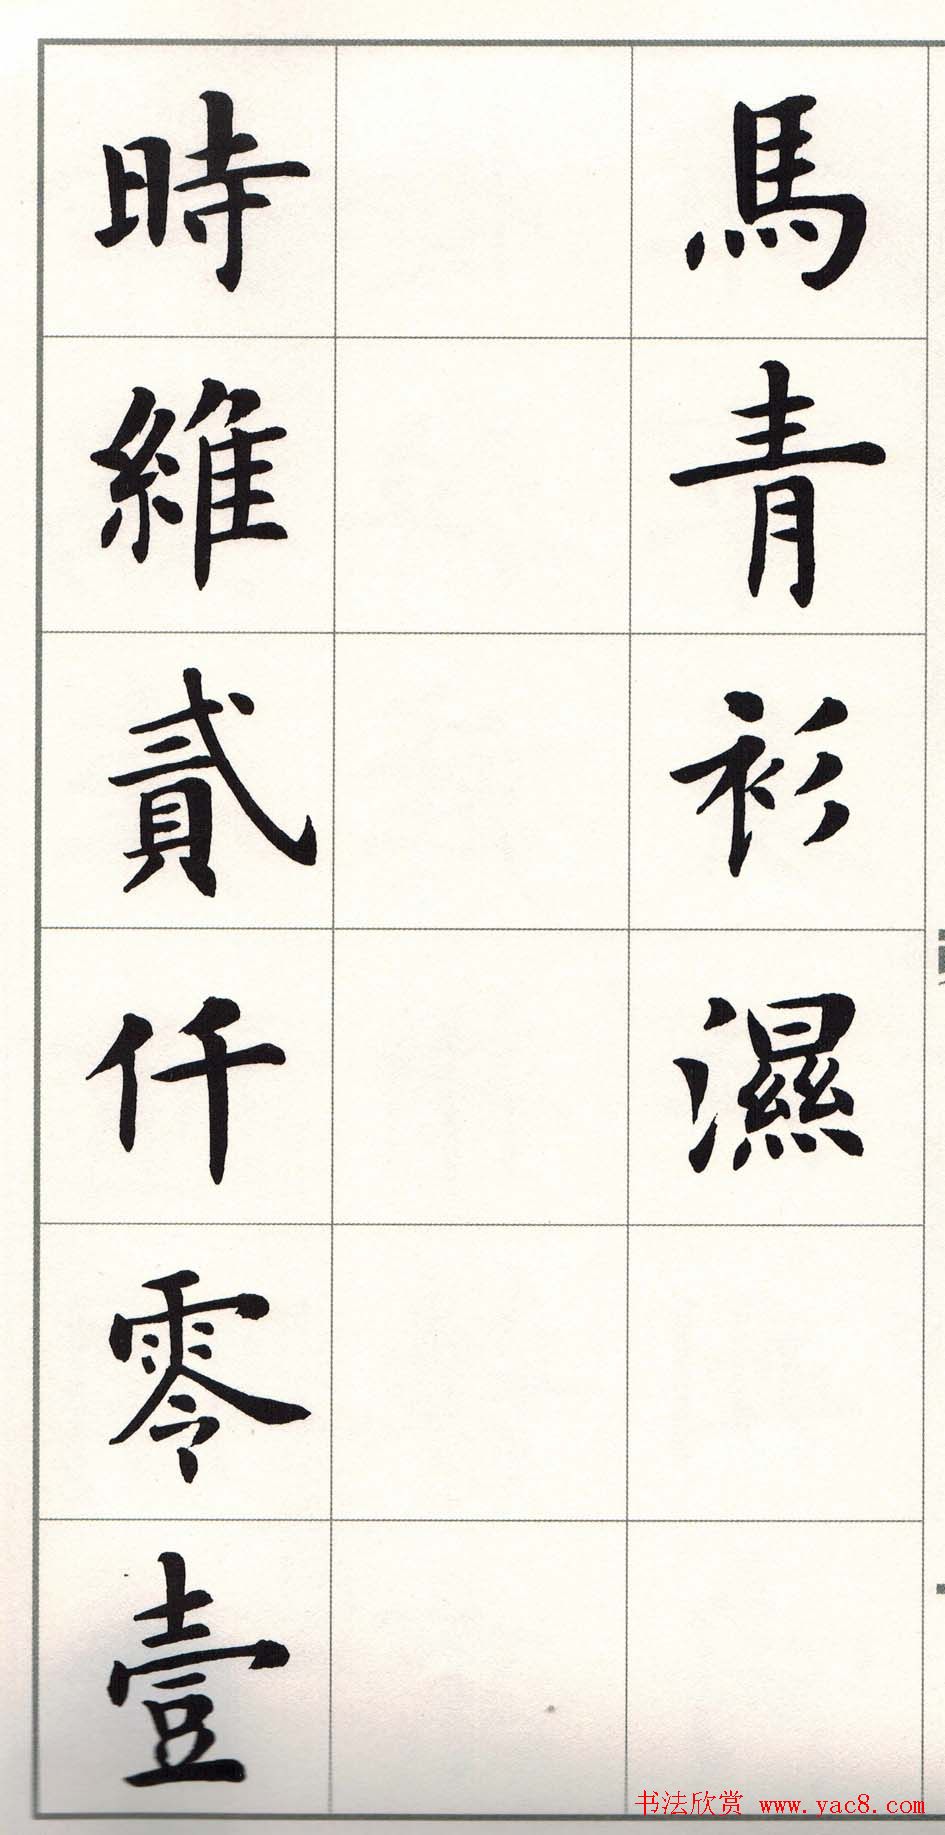 馬青衫濕
時維貳仟零壹
书法欣赏 www.yac8.com